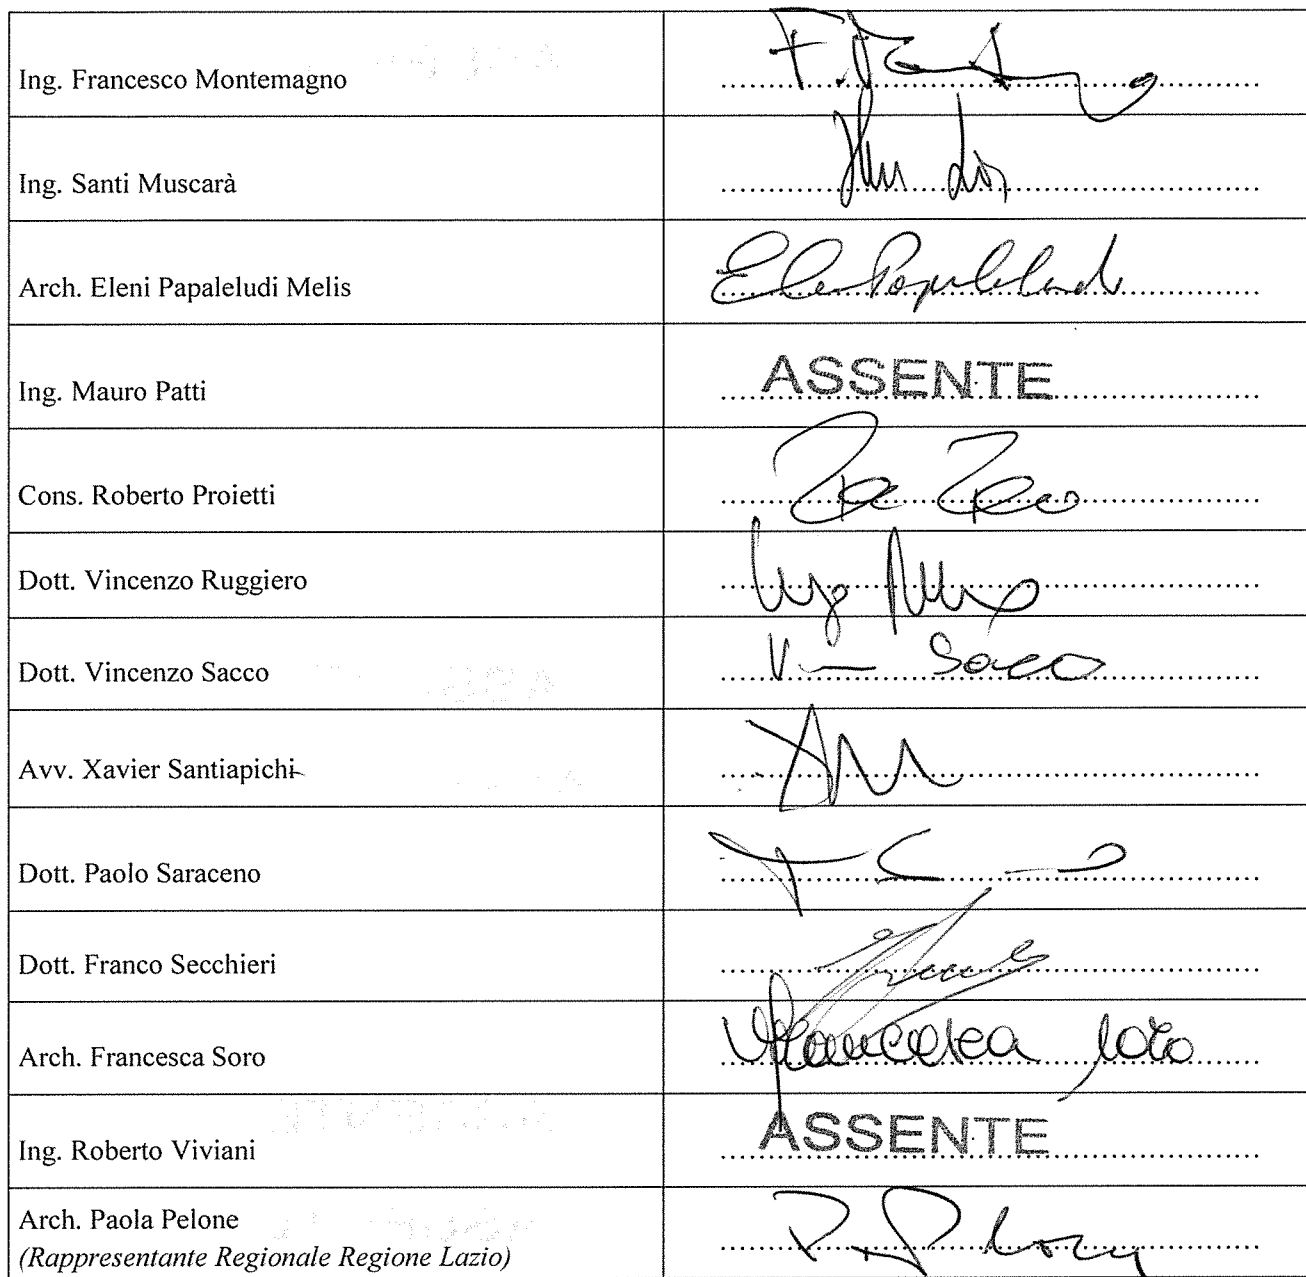 Ing. Francesco Montemagno
Ing. Santi Muscarà
Arch. Eleni Papaleludi Melis
Ing. Mauro Patti ASSENTE
Cons. Roberto Proietti
Dott. Vincenzo Ruggiero
Dott. Vincenzo Sacco
Avv. Xavier Santiapichi
Dott. Paolo Saraceno
Dott. Franco Secchieri
Arch. Francesca Soro Francesca Soro
Ing. Roberto Viviani ASSENTE
Arch. Paola Pelone
(Rappresentante Regionale Regione Lazio)